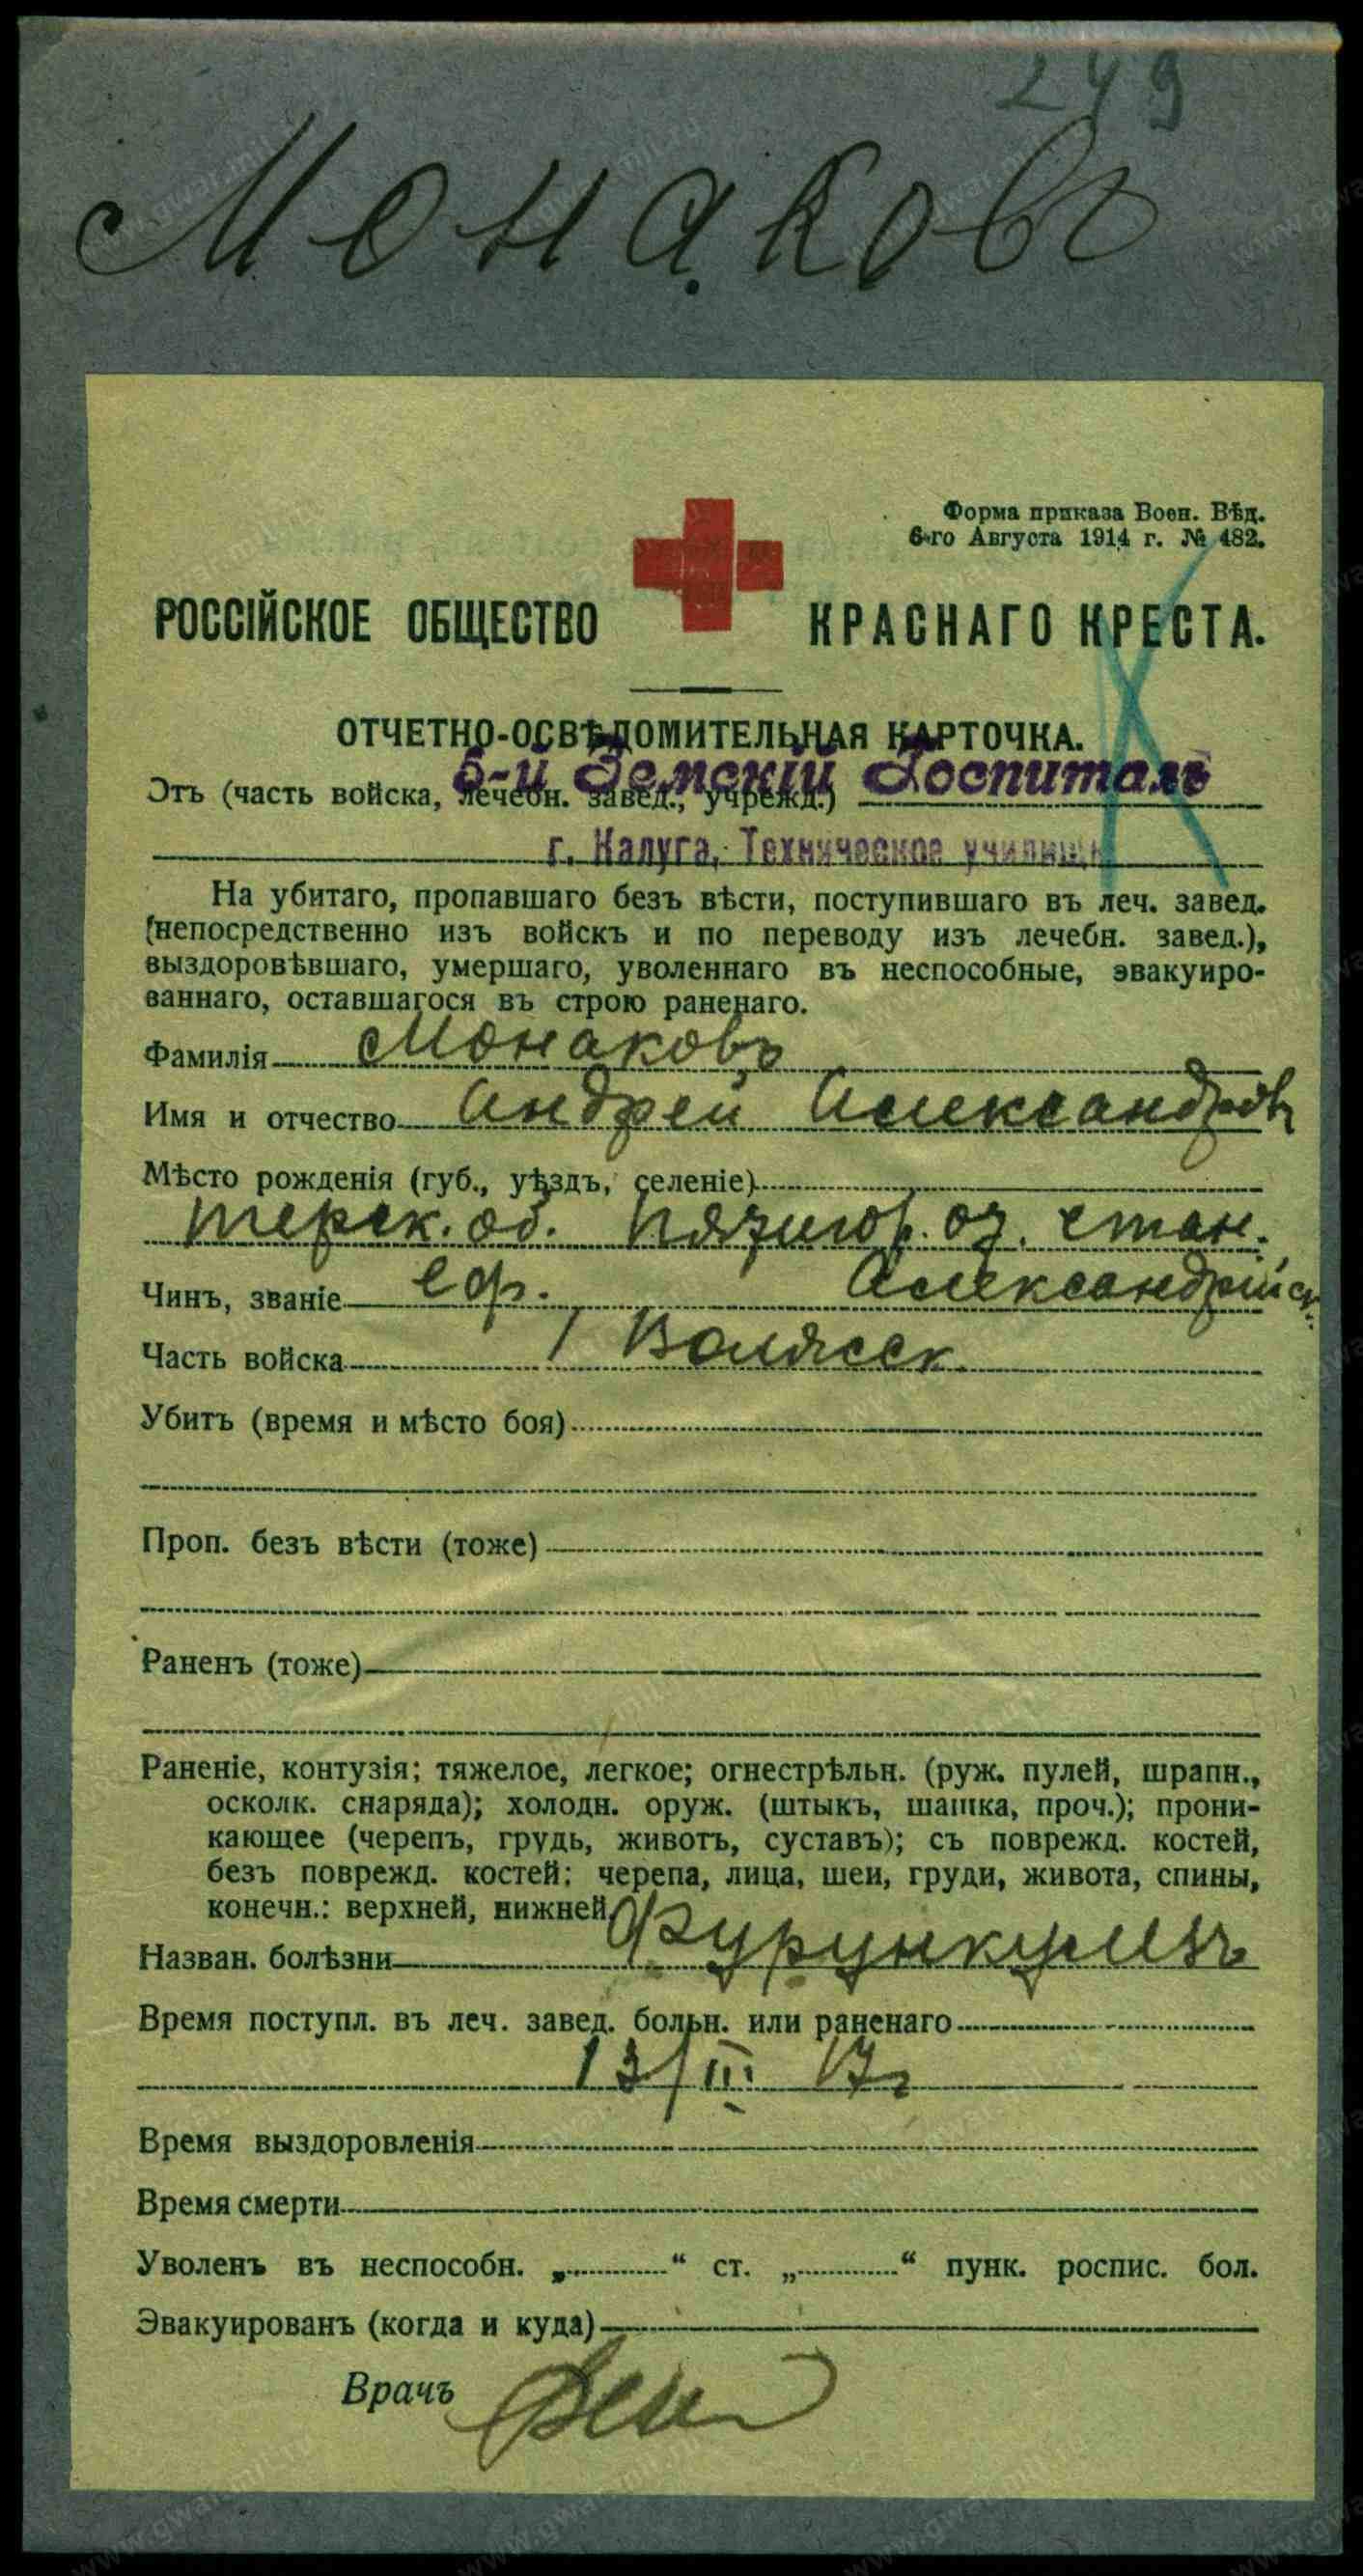 249
Монаковъ
Форма приказа Воен. Вѣд.
6-го Августа 1914 г. № 482.
РОССІЙСКОЕ ОБЩЕСТВО КРАСНАГО КРЕСТА.
ОТЧЕТНО-ОСВѢДОМИТЕЛЬНАЯ КАРТОЧКА.
6-й Земскій Госпиталь
Отъ (часть войска, лечебн. завед., учрежд.)
г. Калуга, Техническое училище
На убитаго, пропавшаго безъ вѣсти, поступившаго въ леч. завед.
(непосредственно изъ войскъ и по переводу изъ лечебн. завед.),
выздоровѣвшаго, умершаго, уволеннаго въ неспособные, эвакуиро-
ваннаго, оставшагося въ строю раненаго.
Фамилія Монаковъ
Имя и отчество Андрей Александров
Мѣсто рожденія (губ., уѣздъ, селеніе)
Терск. об. Пятигор. стан.
Чинъ, званіе Еф. Александрийск.
Часть войска 1 Волжск.
Убитъ (время и мѣсто боя)
Проп. безъ вѣсти (тоже)
Раненъ (тоже)
Раненіе, контузія; тяжелое, легкое; огнестрѣльн. (руж. пулей, шрапн.,
осколк. снаряда); холодн. оруж. (штыкъ, шашка, проч.); прони-
кающее (черепъ, грудь, животъ, суставъ); съ поврежд. костей,
безъ поврежд. костей: черепа, лица, шеи, груди, живота, спины,
конечн.: верхней, нижней,
Назван. болѣзни Фурункулезъ
Время поступл. въ леч. завед. больн. или раненаго
13/III 17 г
Время выздоровленія
Время смерти
Уволенъ въ неспособн. „ “ ст. „ “ пунк. роспис. бол.
Эвакуированъ (когда и куда)
Врачъ